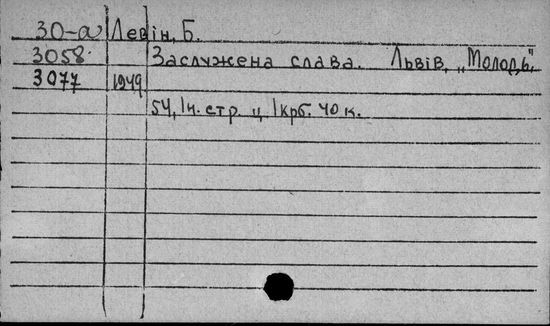 30-а Левін, Б.
3058. Заслужена слава. Львів, „Молодь",
3077 1949
54, Ін. стр. ц 1крб. 40 к.